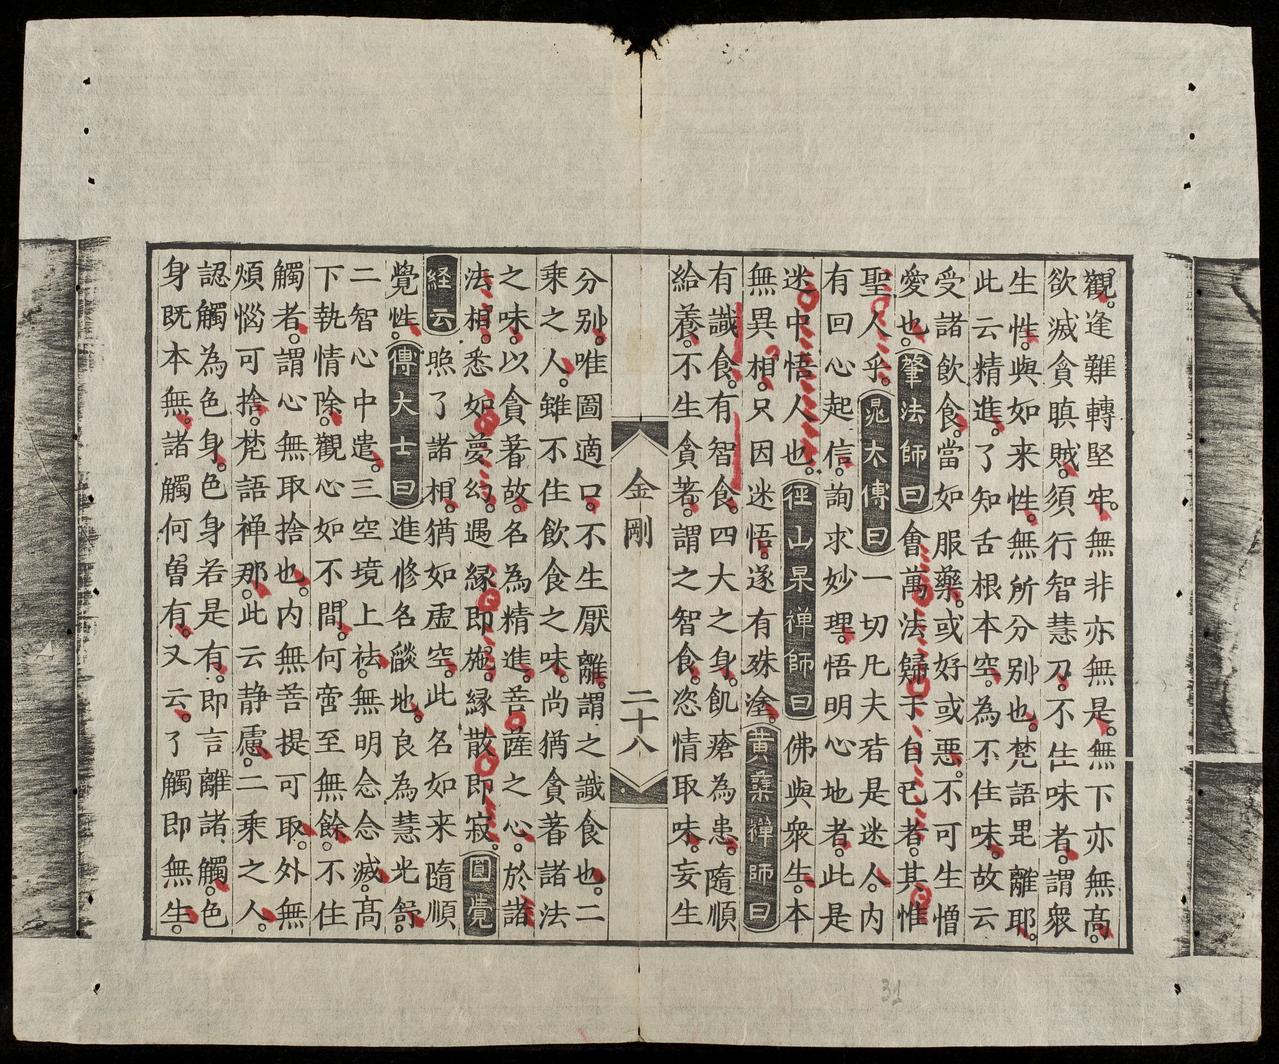 觀。逢難轉堅牢。無非亦無是。無下亦無高。
欲滅貪瞋賊。須行智慧刀。不住味者。謂衆
生性。與如来性。無所分别也。梵語毘離耶。
此云精進。了知舌根本空。為不住味。故云
受諸飲食。當如服藥。或好或悪。不可生憎
愛也。肇法師曰會萬法歸于自已者。其惟
聖人乎。晁太傳曰一切凡夫皆是迷人。内
有回心起信。詢求妙理。悟明心地者。此是
迷中悟人也。徑山杲禅師曰佛與衆生。本
無異相。只因迷悟。遂有殊塗。黄蘗禅師曰
有識食。有智食。四大之身。飢瘡為患。隨順
給養。不生貪著。謂之智食。恣情取味。妄生
金剛
二十八
分别。唯圖適口。不生厭離。謂之識食也。二
乘之人。雖不住飲食之味。尚猶貪著諸法
之味。以貪著故。名為精進。菩薩之心。於諸
法相。悉如夢幻。遇緣即施。緣散即寂。圓覺
経云照了諸相。猶如虛空。此名如来隨順
覺性。傅大士曰進修名𦦨地。良為慧光舒。
二智心中遣。三空境上袪。無明念念滅。高
下執情除。觀心如不間。何啻至無餘。不住
觸者。謂心無取捨也。内無菩提可取。外無
煩惱可捨。梵語禅那。此云静慮。二乘之人。
認觸為色身。色身若是有。即言離諸觸。色
身既本無。諸觸何曽有。又云。了觸即無生。
31